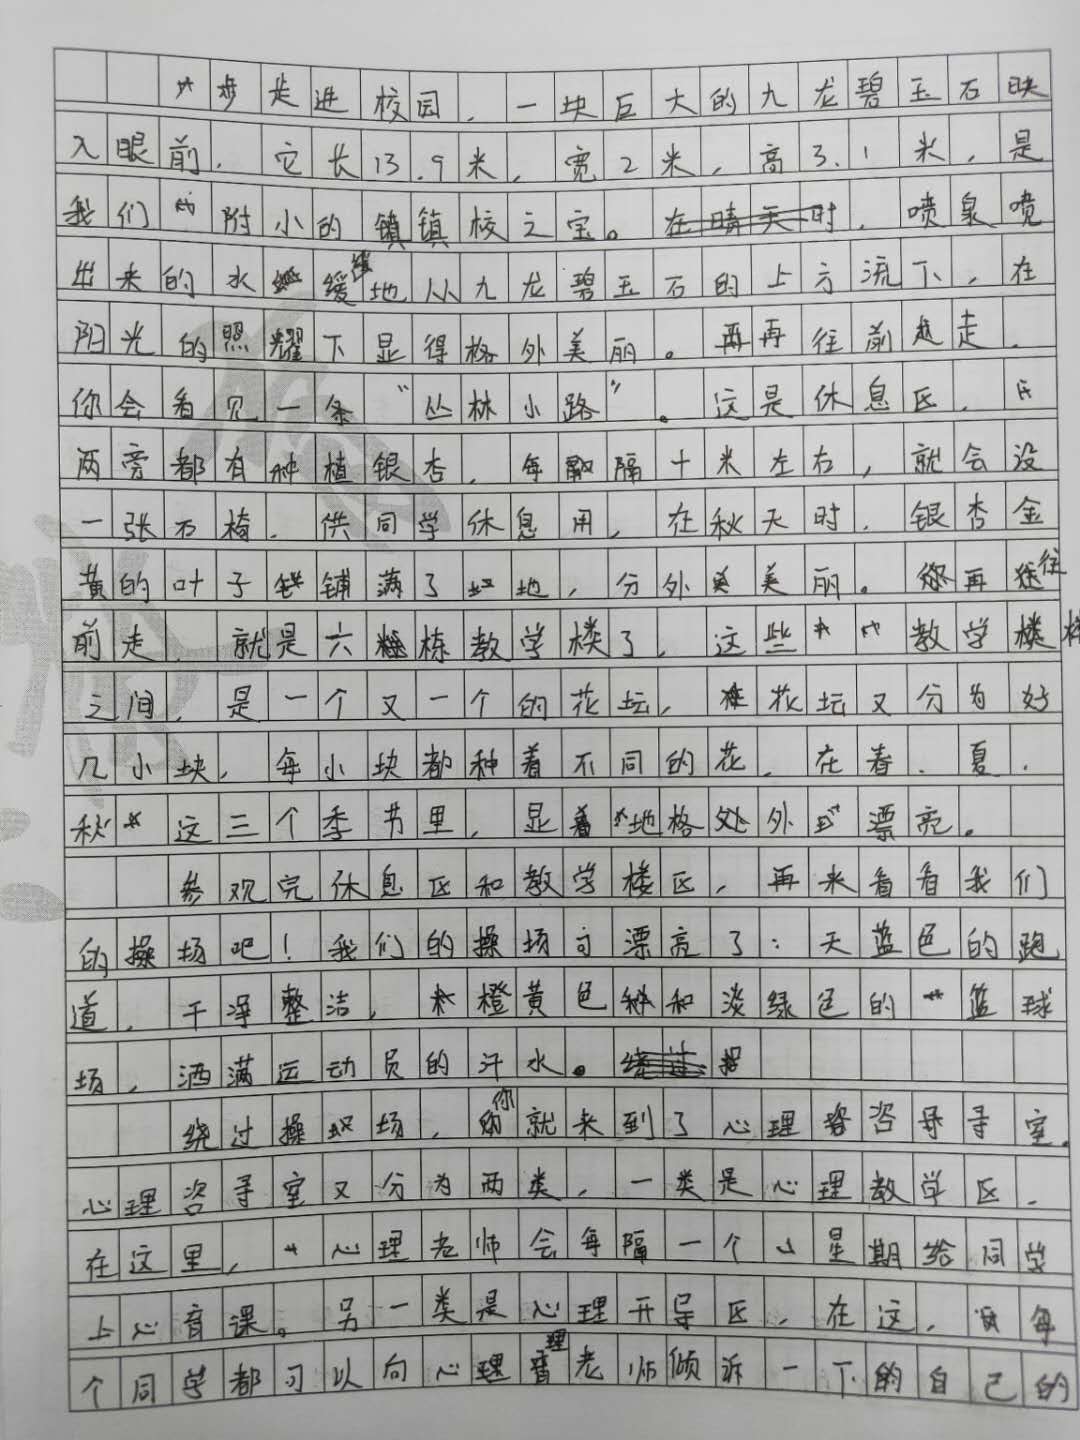 步走进校园，一块巨大的九龙碧玉石映
入眼前，它长13.9米，宽2米，高3.1米，是
我们附小的镇校之宝。喷泉喷
出来的水缓缓地从九龙碧玉石的上方流下，在
阳光的照耀下显得格外美丽。再往前走，
你会看见一条“丛林小路”。这是休息区，
两旁都有种植银杏，每隔十米左右，就会设
一张石椅，供同学休息用，在秋天时，银杏金
黄的叶子铺满了地，分外美丽。你再往
前走，就是六栋教学楼了，这些教学楼
之间，是一个又一个的花坛，花坛又分为好
几小块，每小块都种着不同的花，在春、夏、
秋这三个季节里，显地格外漂亮。
参观完休息区和教学楼区，再来看看我们
的操场吧！我们的操场可漂亮了：天蓝色的跑
道，干净整洁，橙黄色和淡绿色的篮球
场，洒满运动员的汗水。
绕过操场，你就来到了心理咨寻室。
心理咨寻室又分为两类，一类是心理教学区，
在这里，心理老师会每隔一个星期给同学
上心育课。另一类是心理开导区，在这，每
个同学都可以向心理老师倾诉一下的自己的